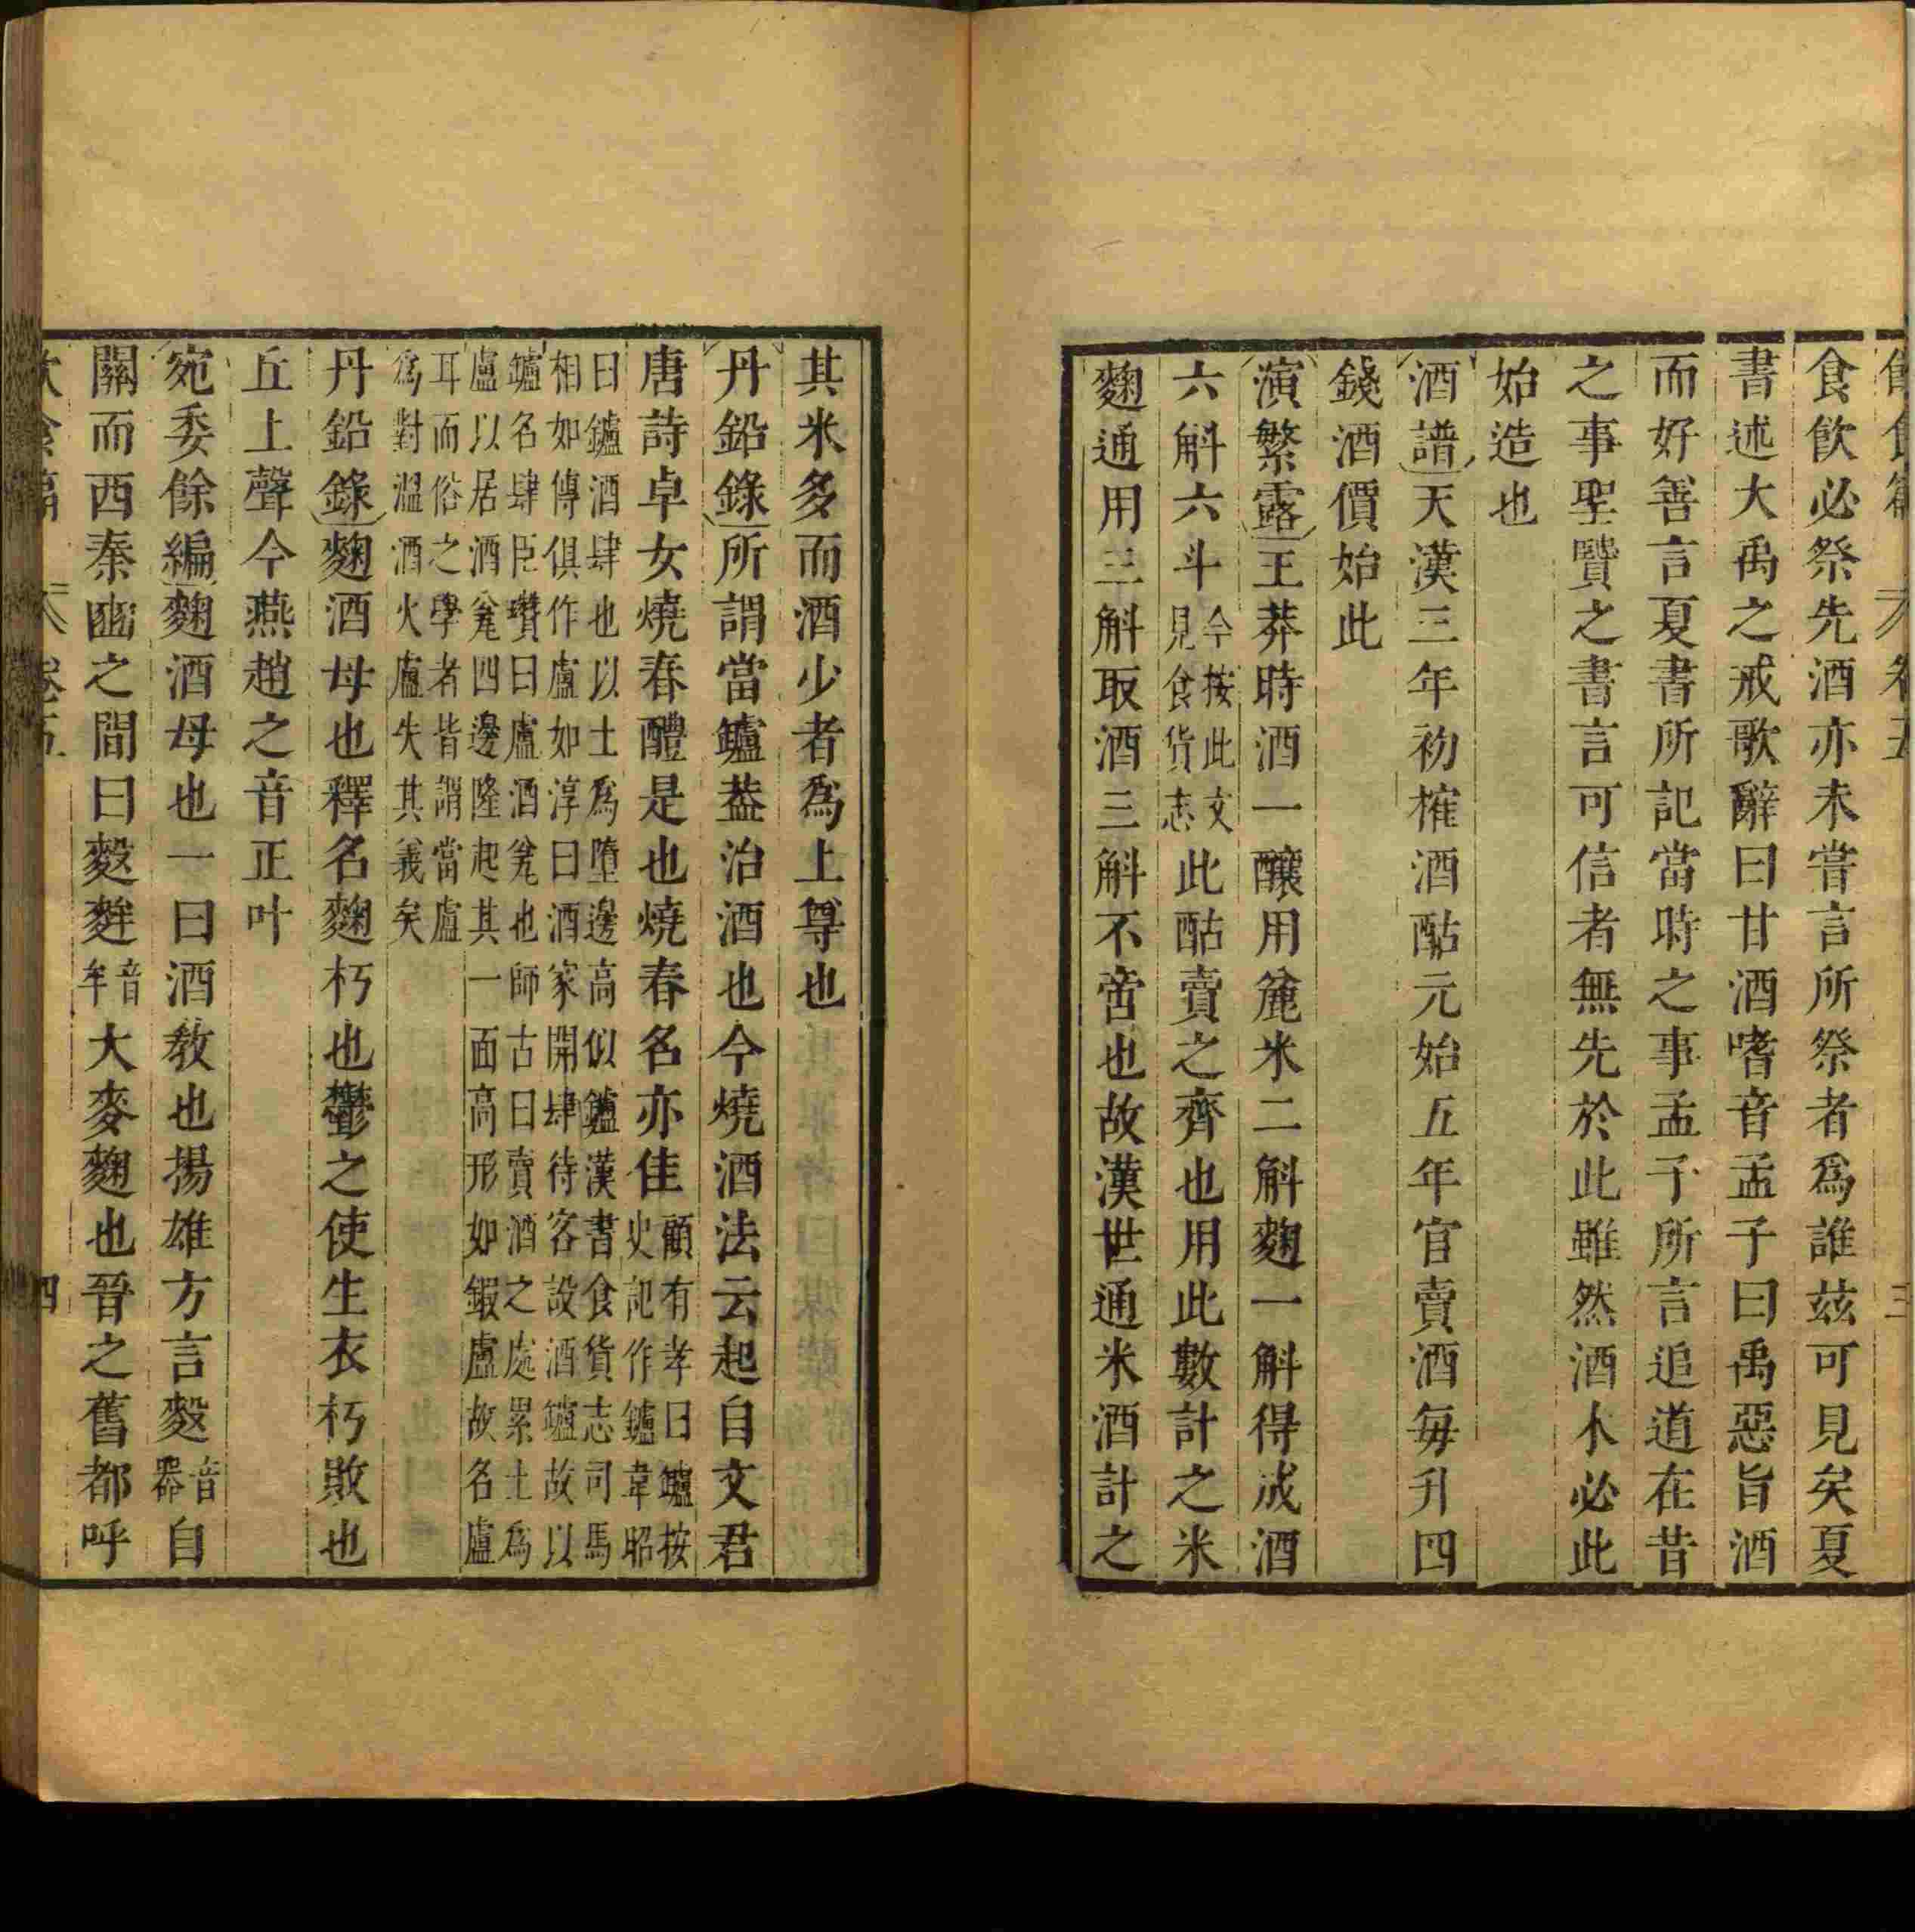 飲食篇 卷五 三
食飲必祭先酒亦未嘗言所祭者爲誰茲可見矣夏
書述大禹之戒歌辭曰甘酒嗜音孟子曰禹惡旨酒
而好善言夏書所記當時之事孟子所言追道在昔
之事聖賢之書言可信者無先於此雖然酒不必此
始造也
酒譜天漢三年初榷酒酤元始五年官賣酒每升四
錢酒價始此
演繁露王莽時酒一釀用麄米二斛麴一斛得成酒
六斛六斗今按此文見食貨志此酤賣之齊也用此數計之米
麴通用三斛取酒三斛不啻也故漢世通米酒計之
其米多而酒少者爲上尊也
丹鉛錄所謂當鑪葢治酒也今燒酒法云起自文君
唐詩卓女燒春醲是也燒春名亦佳顧有孝曰鑪按史記作鑪韋昭
曰鑪酒肆也以土爲墮邊高似鑪漢書食貨志司馬
相如傳俱作盧如淳曰酒家開肆待客設酒鑪故以
鑪名肆臣瓚曰盧酒瓮也師古曰賣酒之處累土爲
盧以居酒瓮四邊隆起其一面高形如鍜盧故名盧
耳而俗之學者皆謂當盧
爲對溫酒火盧失其義矣
丹鉛錄麴酒母也釋名麴朽也鬱之使生衣朽敗也
丘上聲今燕趙之音正叶
宛委餘編麴酒母也一曰酒教也揚雄方言䴷音器自
關而西秦豳之間曰䴷麰音牟大麥麴也晉之舊都呼
飲食篇 卷五 四